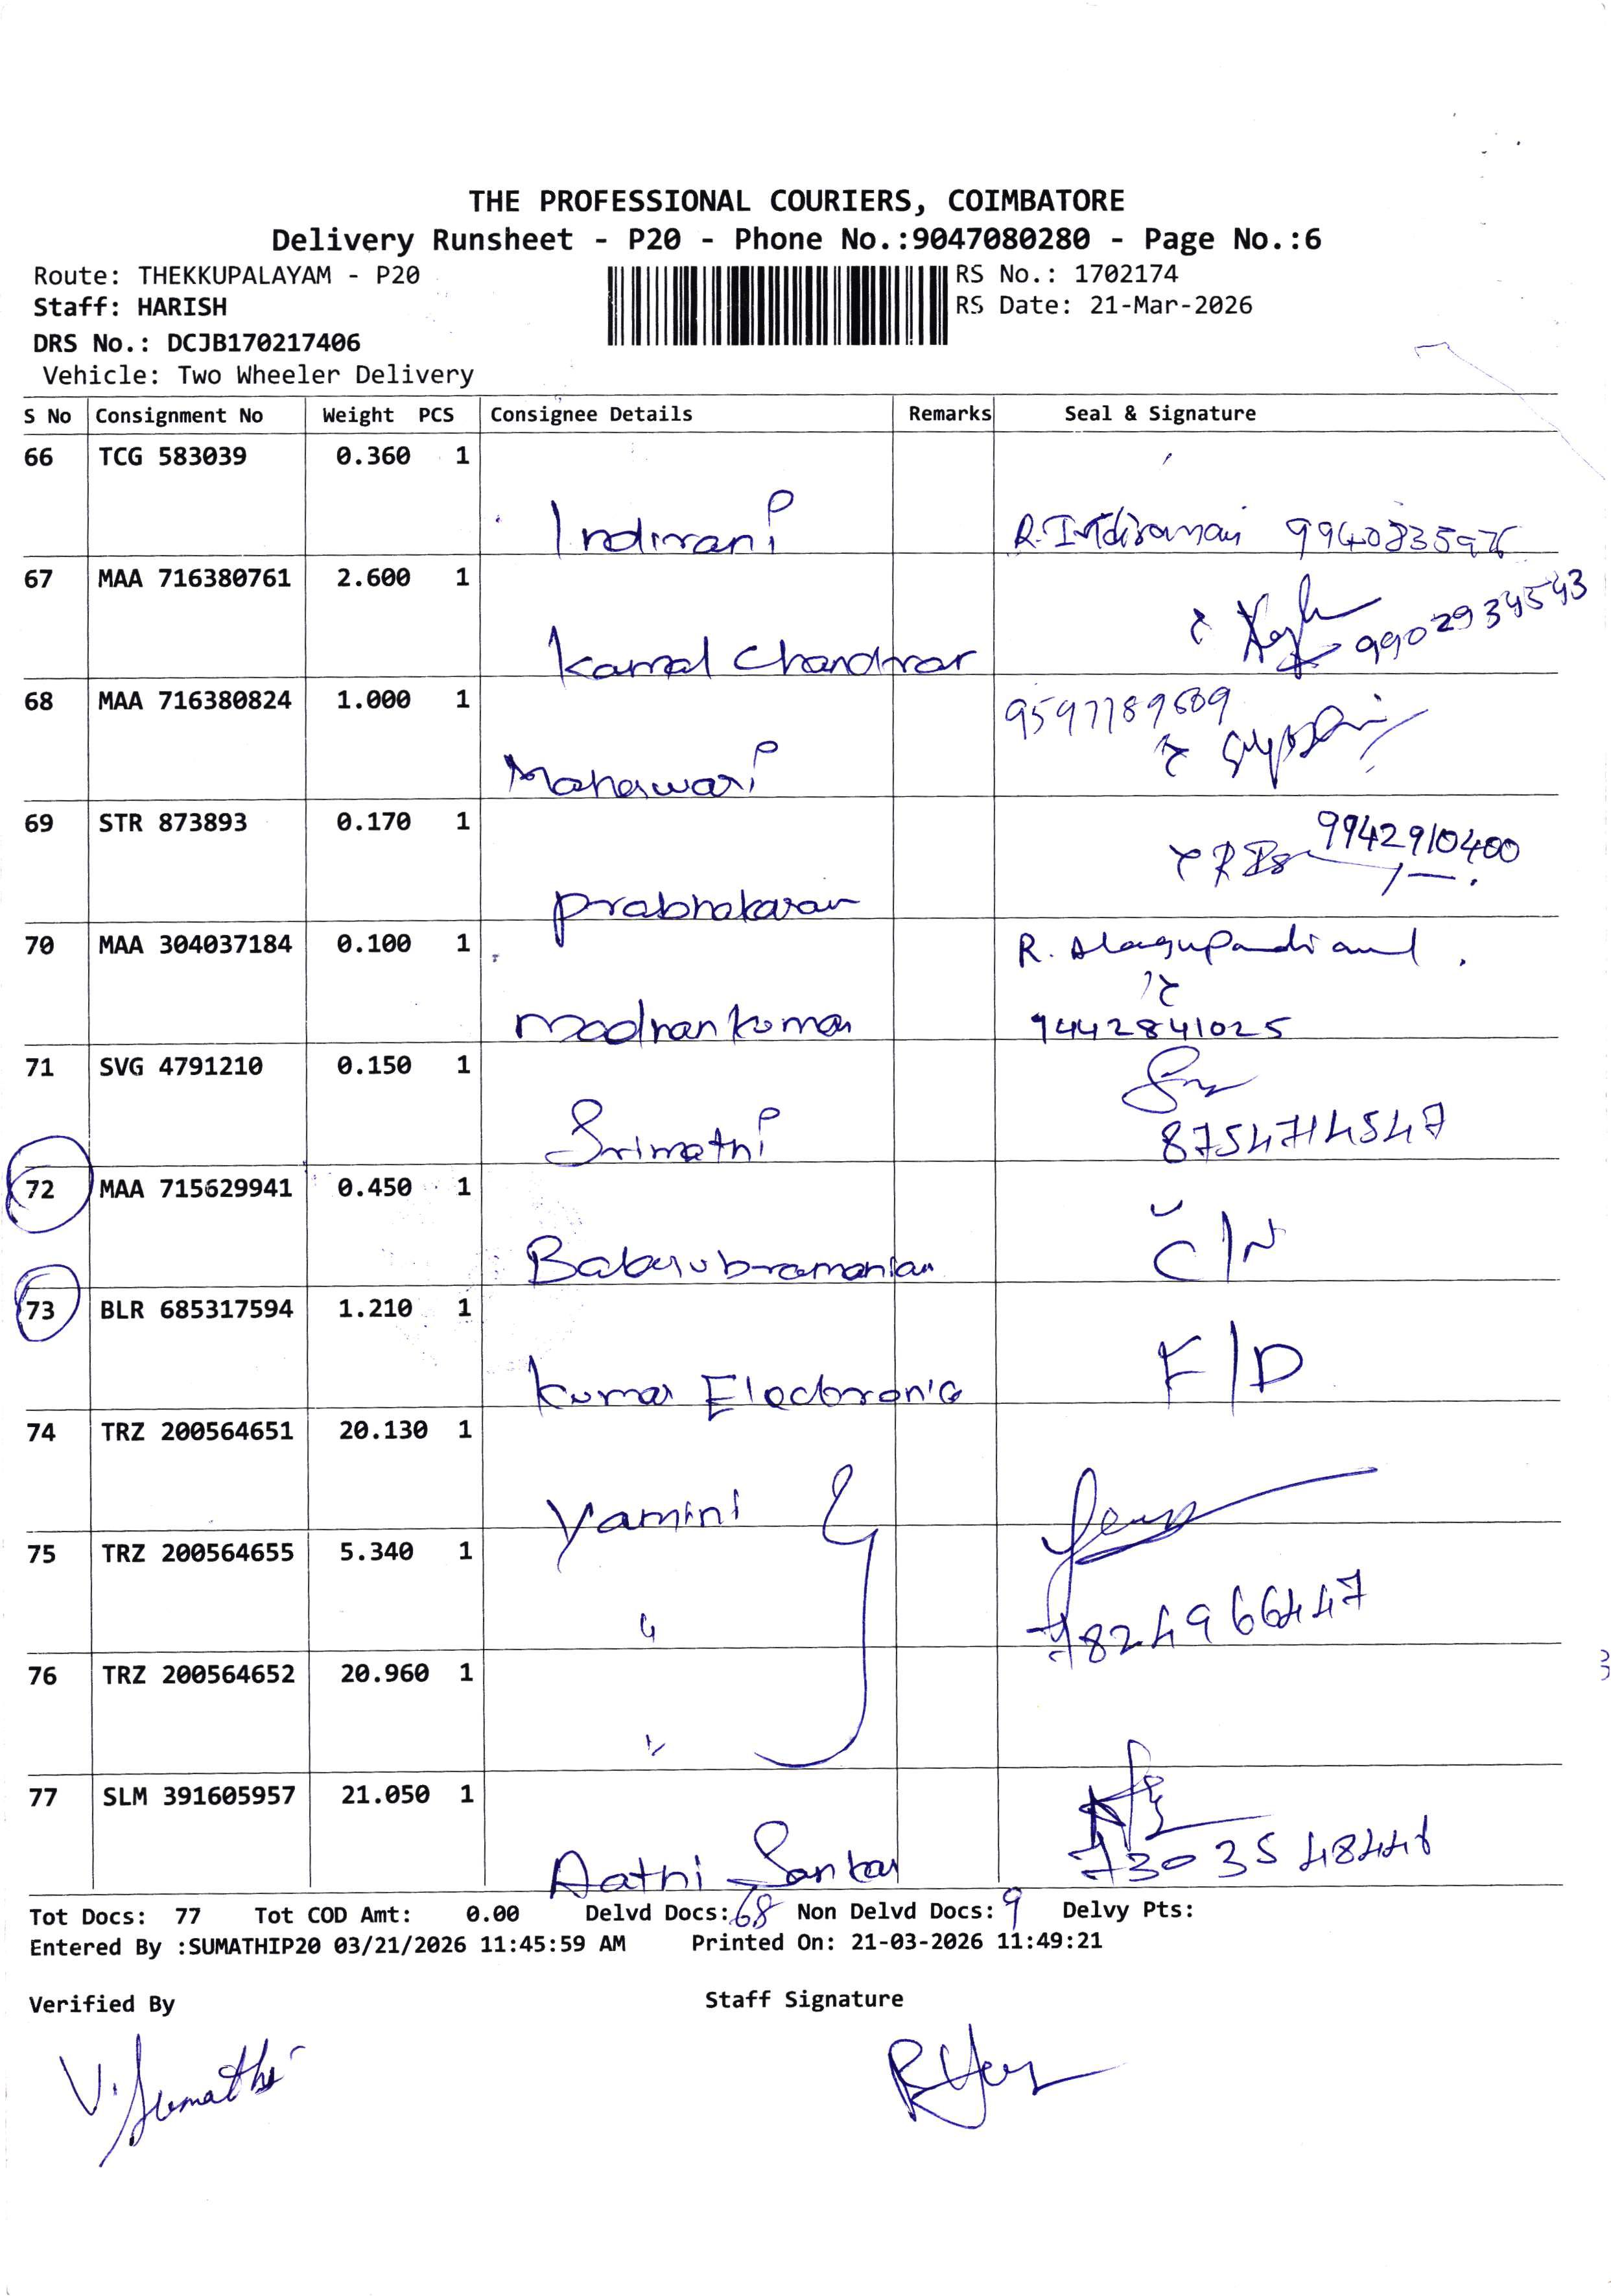 THE PROFESSIONAL COURIERS, COIMBATORE
Delivery Runsheet - P20 - Phone No.:9047080280 - Page No.:6
Route: THEKKUPALAYAM - P20
RS No.: 1702174
Staff: HARISH
RS Date: 21-Mar-2026
DRS No.: DCJB170217406
Vehicle: Two Wheeler Delivery
S No Consignment No Weight PCS Consignee Details Remarks Seal & Signature
66 TCG 583039 0.360 1
Indirani R. Indiramani
67 MAA 716380761 2.600 1
Kamal Chandrar 9902934543
68 MAA 716380824 1.000 1
9597789689
Maheswari
69 STR 873893 0.170 1
9942910400
Prabhakaran
70 MAA 304037184 0.100 1
R. Alagupandi
Madhankumar 9442841025
71 SVG 4791210 0.150 1
Srimathi 8754714547
72 MAA 715629941 0.450 1
Balasubramanian C/N
73 BLR 685317594 1.210 1
Kumar Electronic F/D
74 TRZ 200564651 20.130 1
Yamini
75 TRZ 200564655 5.340 1
〃 7824966447
76 TRZ 200564652 20.960 1
〃
77 SLM 391605957 21.050 1
Aathi Sankar 7303548446
Tot Docs: 77 Tot COD Amt: 0.00 Delvd Docs: 68 Non Delvd Docs: 9 Delvy Pts:
Entered By :SUMATHIP20 03/21/2026 11:45:59 AM Printed On: 21-03-2026 11:49:21
Verified By Staff Signature
V. Sumathi